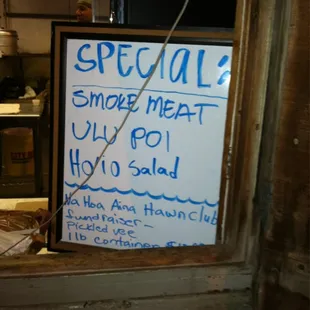 SPECIAL:
SMOKE MEAT
ULU POI
Ho'io Salad
Na Hoa Aina Hawn Club
fundraiser -
Pickled
1 lb container